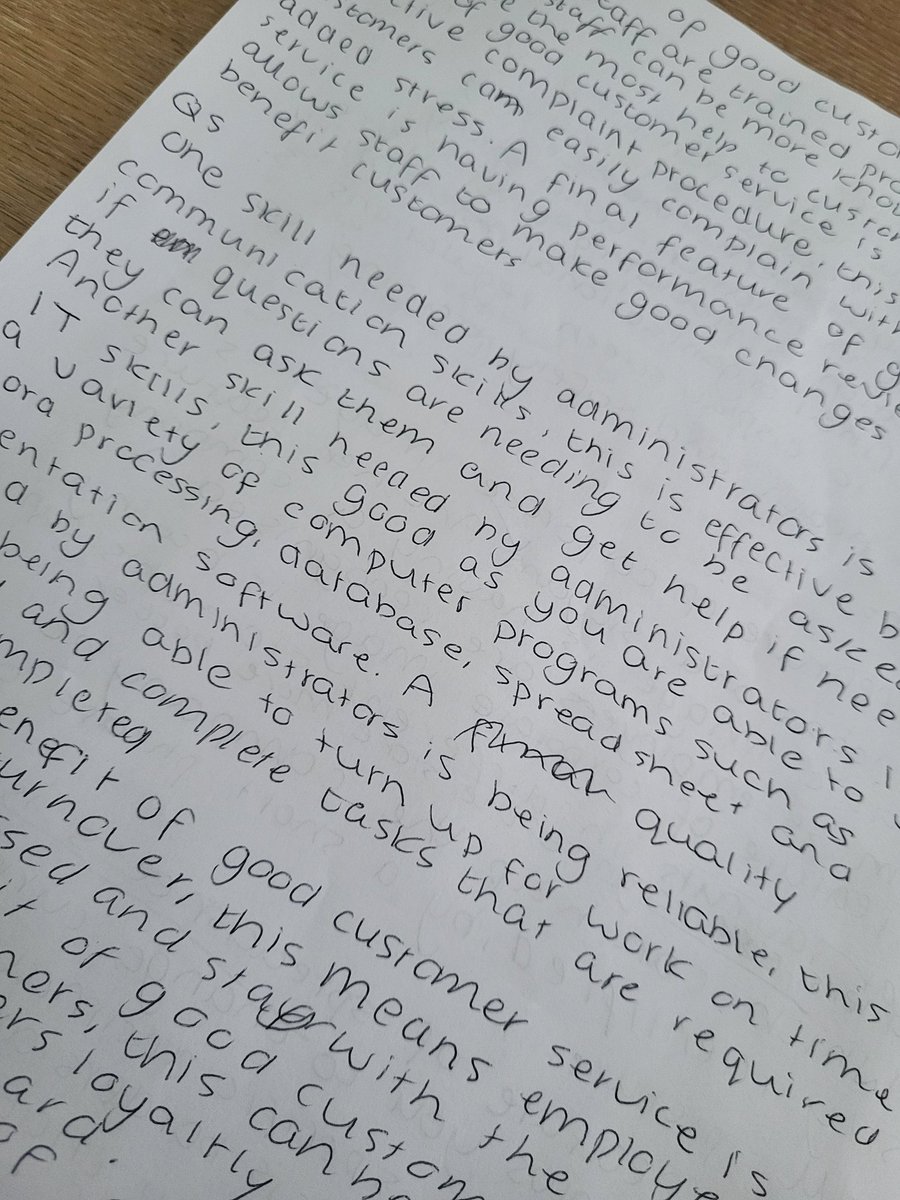 of good custo
staff are trained pro
staff can be more know
the most help to custom
of good customer service is
ctive complaint procedure, this
stomers can easily complain with
added stress. A final feature of g
service is having performance revie
allows staff to make good changes
benefit customers
Q5
One skill needed by administrators is
communication skills, this is effective b
if questions are needing to be asked
they can ask them and get help if nee
Another skill needed by administrators i
IT skills, this good as you are able to
a variety of computer programs such as
ora processing, database, spreadsheet and
entation software. A quality
d by administrators is being reliable, this
being able to turn up for work on time
and complete tasks that are required
mpleted
enefit of good customer service is
urnover, this means employe
sed and stay with the
it of good custom
mers, this can
ers loyalty
ard.
of